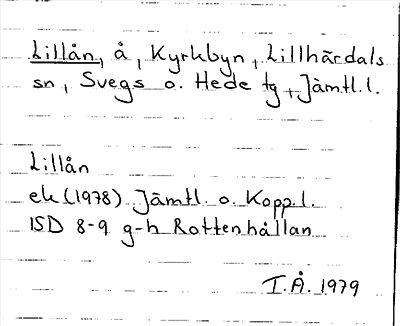 Lillån, å, Kyrkbyn, Lillhärdals
sn, Svegs o. Hede tg, Jämtl.l.
Lillån
ek (1978) Jämtl. o. Kopp.l.
ISD 8-9 g-h Rottenhållan
T.Å. 1979